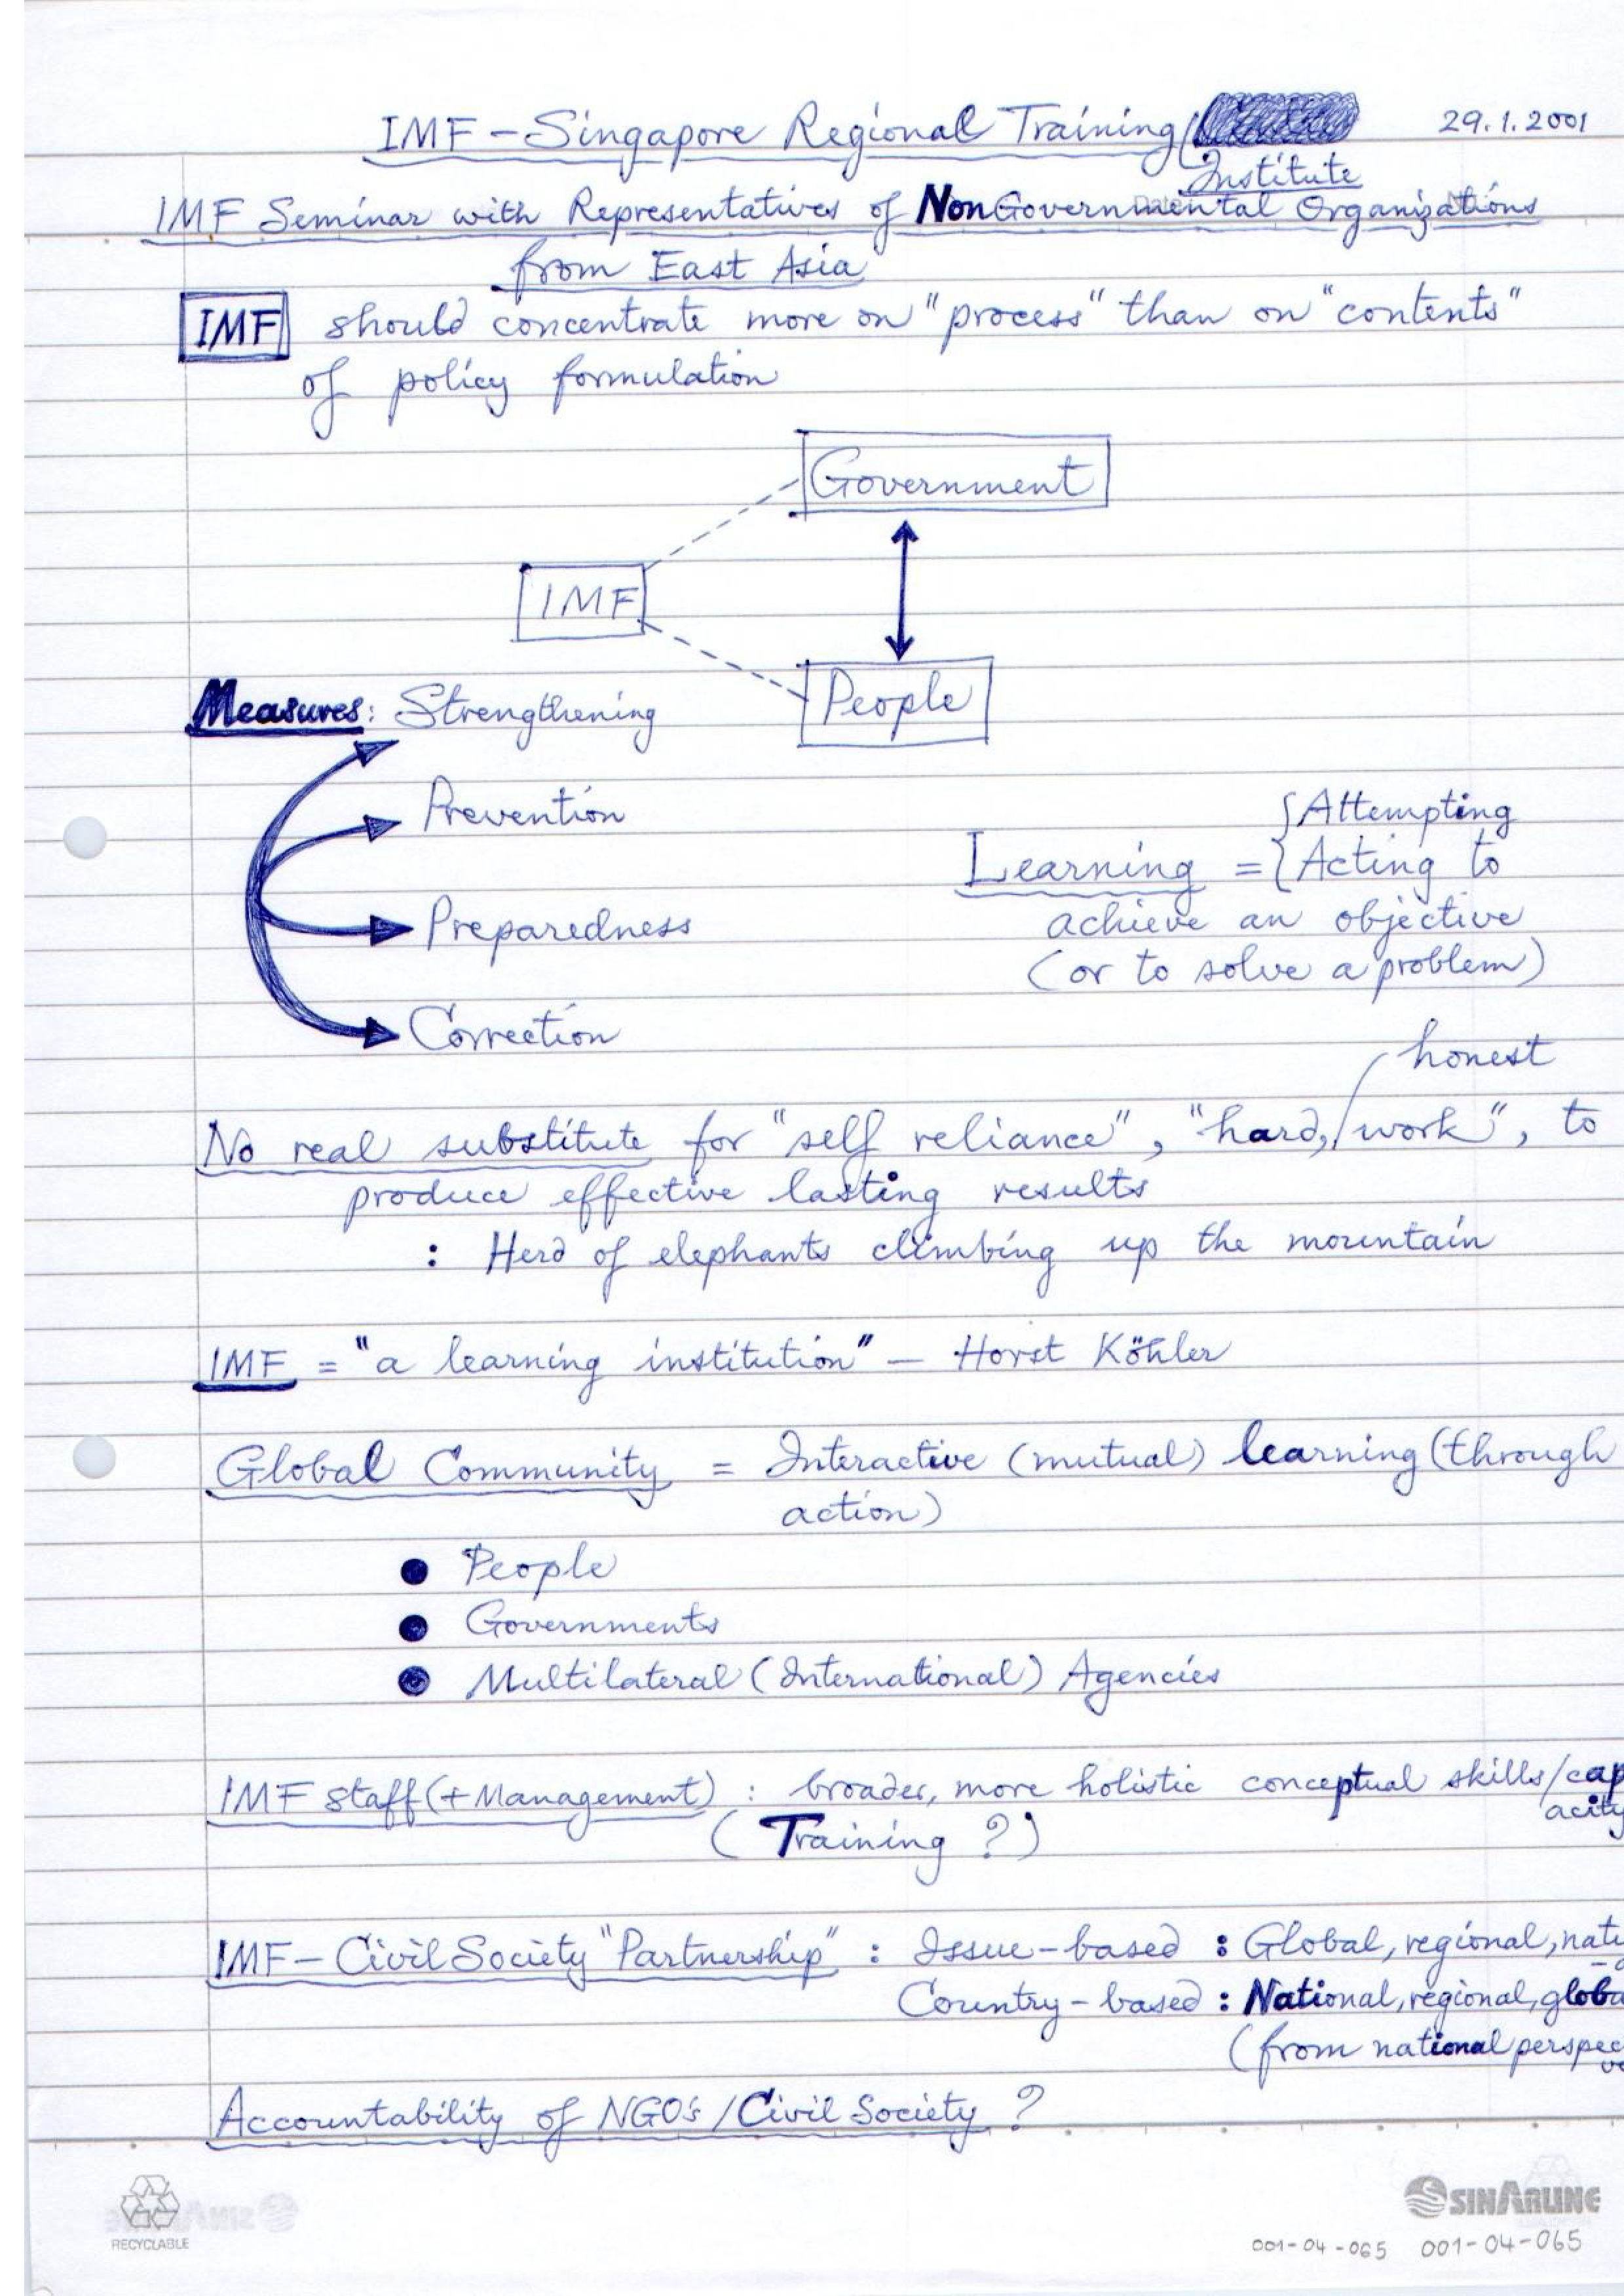 IMF – Singapore Regional Training Institute
29.1.2001
IMF Seminar with Representatives of NonGovernmental Organizations
from East Asia
IMF should concentrate more on "process" than on "contents"
of policy formulation
Government
IMF
People
Measures: Strengthening
Prevention
Preparedness
Correction
Attempting
Learning = Acting to
achieve an objective
(or to solve a problem)
honest
No real substitute for "self reliance", "hard, work", to
produce effective lasting results
: Herd of elephants climbing up the mountain
IMF = "a learning institution" – Horst Köhler
Global Community = Interactive (mutual) learning (through
action)
• People
• Governments
• Multilateral (International) Agencies
IMF staff (+ Management) : broader, more holistic conceptual skills/cap
acity
(Training ?)
IMF – Civil Society "Partnership" : Issue-based : Global, regional, nati
Country-based : National, regional, globa
(from national perspec
Accountability of NGO's / Civil Society ?
RECYCLABLE
SINARLINE
001-04-065 001-04-065